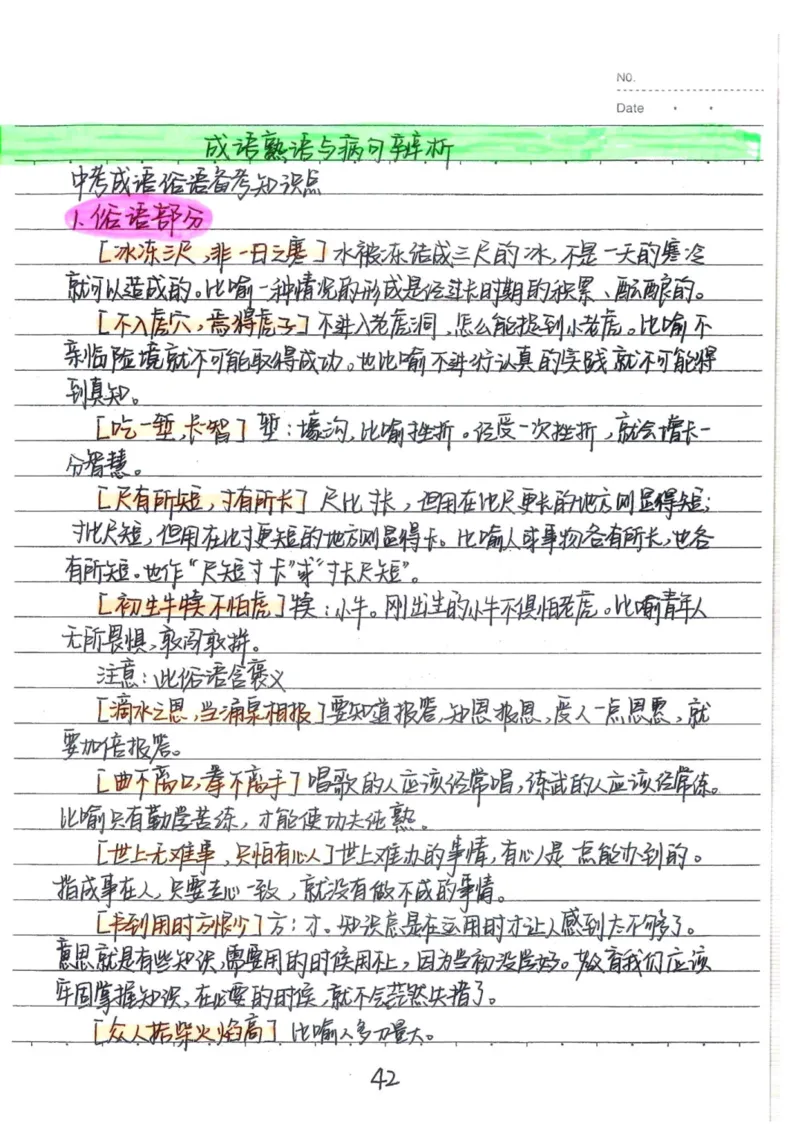 NO.
Date
成语熟语与病句辨析
中考成语俗语备考知识点
1.俗语部分
[冰冻三尺,非一日之寒]水被冻结成三尺的冰,不是一天的寒冷
就可以造成的。比喻一种情况的形成是经过长时期的积累、酝酿的。
[不入虎穴,焉得虎子]不进入老虎洞,怎么能捉到小老虎。比喻不
亲临险境就不可能取得成功。也比喻不进行认真的实践就不可能得
到真知。
[吃一堑,长智]堑:壕沟,比喻挫折。经受一次挫折,就会增长一
分智慧。
[尺有所短,寸有所长]尺比寸长,但用在比尺更长的地方则显得短;
寸比尺短,但用在比寸更短的地方则显得长。比喻人或事物各有所长,也各
有所短。也作“尺短寸长”或“寸长尺短”。
[初生牛犊不怕虎]犊:小牛。刚出生的小牛不惧怕老虎。比喻青年人
无所畏惧,敢闯敢拼。
注意:此俗语含褒义
[滴水之恩,当涌泉相报]要知道报答,知恩报恩,受人一点恩惠,就
要加倍报答。
[曲不离口,拳不离手]唱歌的人应该经常唱,练武的人应该经常练。
比喻只有勤学苦练,才能使功夫纯熟。
[世上无难事,只怕有心人]世上难办的事情,有心人是一定能办到的。
指成事在人,只要志心一致,就没有做不成的事情。
[书到用时方恨少]方:才。知识总是在运用时才让人感到太不够了。
意思就是有些知识,需要用的时候用不上,因为当初没学好。教育我们应该
牢固掌握知识,在必要的时候,就不会茫然失措了。
[众人拾柴火焰高]比喻人多力量大。
42